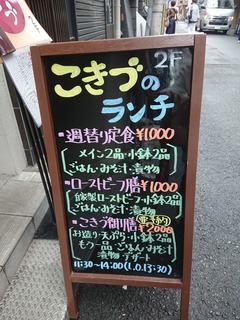 2F
こきづの
ランチ
週替り定食¥1,000
メイン2品・小鉢2品
ごはん・みそ汁・漬物
ローストビーフ膳¥1,000
自家製ローストビーフ・小鉢2品
ごはん・みそ汁・漬物
こきづ御膳 ¥2,000
お造り・天ぷら・小鉢2品
もう一品・ごはん・みそ汁
漬物・デザート
11:30〜14:00(L.O.13:30)